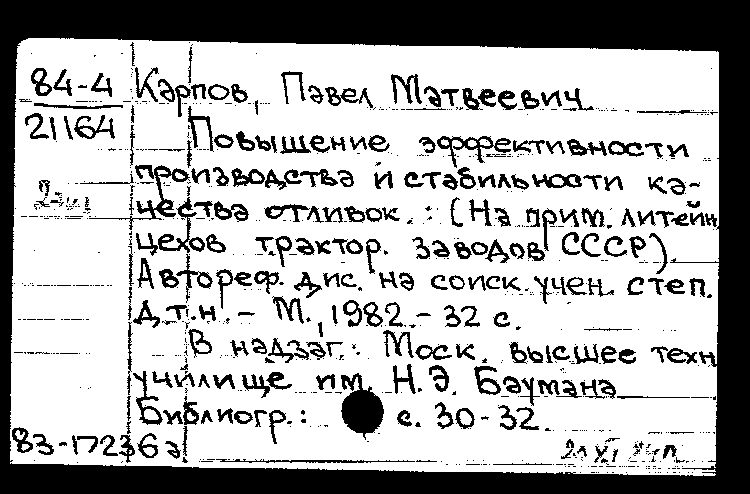 84-4 Карпов, Павел Матвеевич
21164 Повышение эффективности
производства и стабильности ка-
чества отливок. : (На прим. литейн
цехов трактор. заводов СССР).
Автореф. дис. на соиск. учен. степ.
д.т.н. - М., 1982. - 32 с.
В надзаг.: Моск. высшее техн
училище им. Н.Э. Баумана
Библиогр.: с. 30-32.
83-17236а